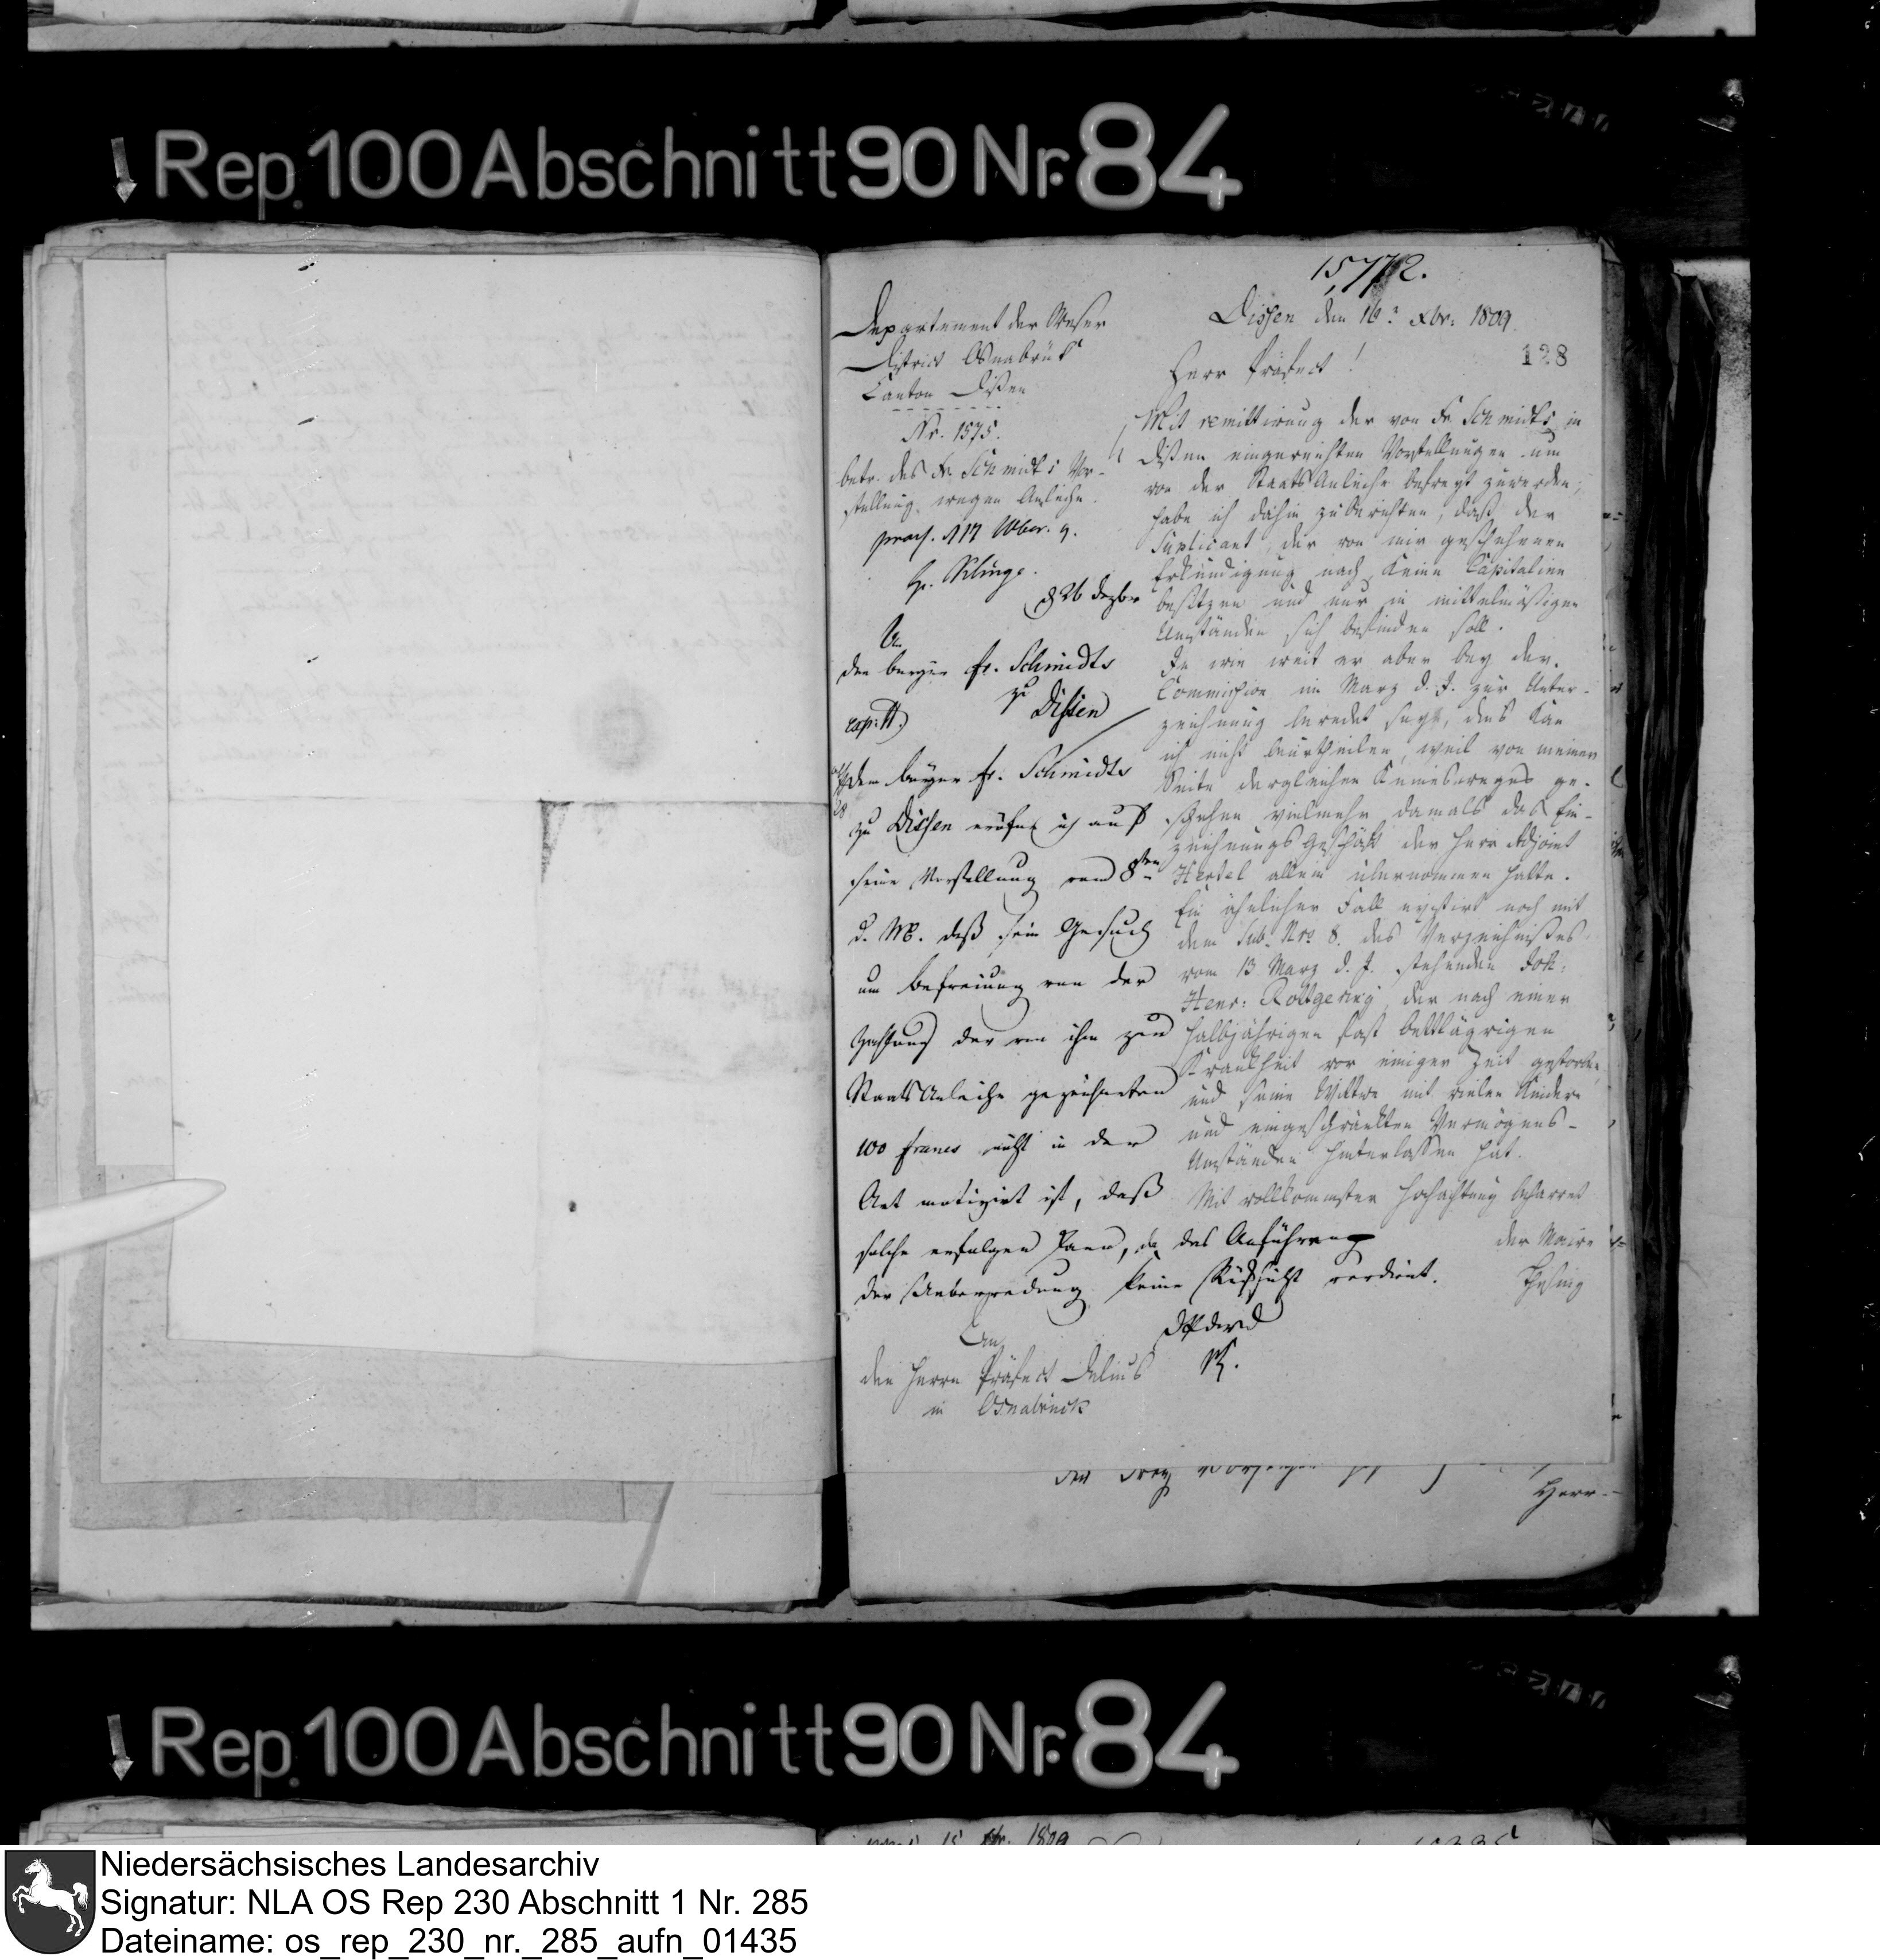 Rep. 100 Abschnitt 90 Nr. 84
15,772.
Departement der Weser
District Osnabrük
Canton Dissen
Nr. 1575.
betr. des Fr. Schmidts Vor-
stellung wegen Anleihe.
praes. d 17 Xber. 9.
H. Klinge.
d 26 Dezber
An
den Burger Fr. Schmidts
zu
Dissen
dem Burger Fr. Schmidts
zu Dissen eröfne ich auf
seine Vorstellung vom 8ten
d. M. daß sein Gesuch
um Befreiung von der
Zahlung der von ihm zur
Staats Anleihe gezeichneten
100 francs nicht in der
Art motivirt ist, daß
solche erfolgen kann, da das Anführen
der Ueberredung keine Rücksicht verdient.
D Pf d W D
Dissen den 16. Xbr: 1809.
128
Herr Präfect!
Mit remittirung der von Fr. Schmidts in
Dissen eingereichten Vorstellungen um
von der Staats Anleihe befreyt zu werden;
habe ich dahin zu berichten, daß der
Suplicant, der von mir geschehenen
Erkundigung nach, keine Capitalien
besitzen und nur in mittelmäßigen
Umständen sich befinden soll.
In wie weit er aber bey der
Commission im Marz d. J. zur Unter-
zeichnung beredet sey, das kan
ich nicht beurtheilen, weil von meiner
Seite dergleichen keinesweges ge-
schehen vielmehr damals das Ein-
zeichnungs Geschäft der Herr Adjoint
Hertel allein übernommen hatte.
Ein ähnlicher Fall existirt noch mit
dem sub. Nro 8. des Verzeichnißes
vom 13 Marz d. J. stehenden Joh:
Henr: Roltgering, der nach einer
halbjährigen fast bettlägrigen
Krankheit vor einiger Zeit gestorben,
und seine Wittwe mit vielen Kindern
und eingeschränkten Vermögens-
Umständen hinterlassen hat.
Mit vollkommster Hochachtung beharret
der Maire
Thesing
An
den Herrn Präfect Delius
in Osnabrück
Herr
Rep. 100 Abschnitt 90 Nr. 84
1809
Niedersächsisches Landesarchiv
Signatur: NLA OS Rep 230 Abschnitt 1 Nr. 285
Dateiname: os_rep_230_nr._285_aufn_01435